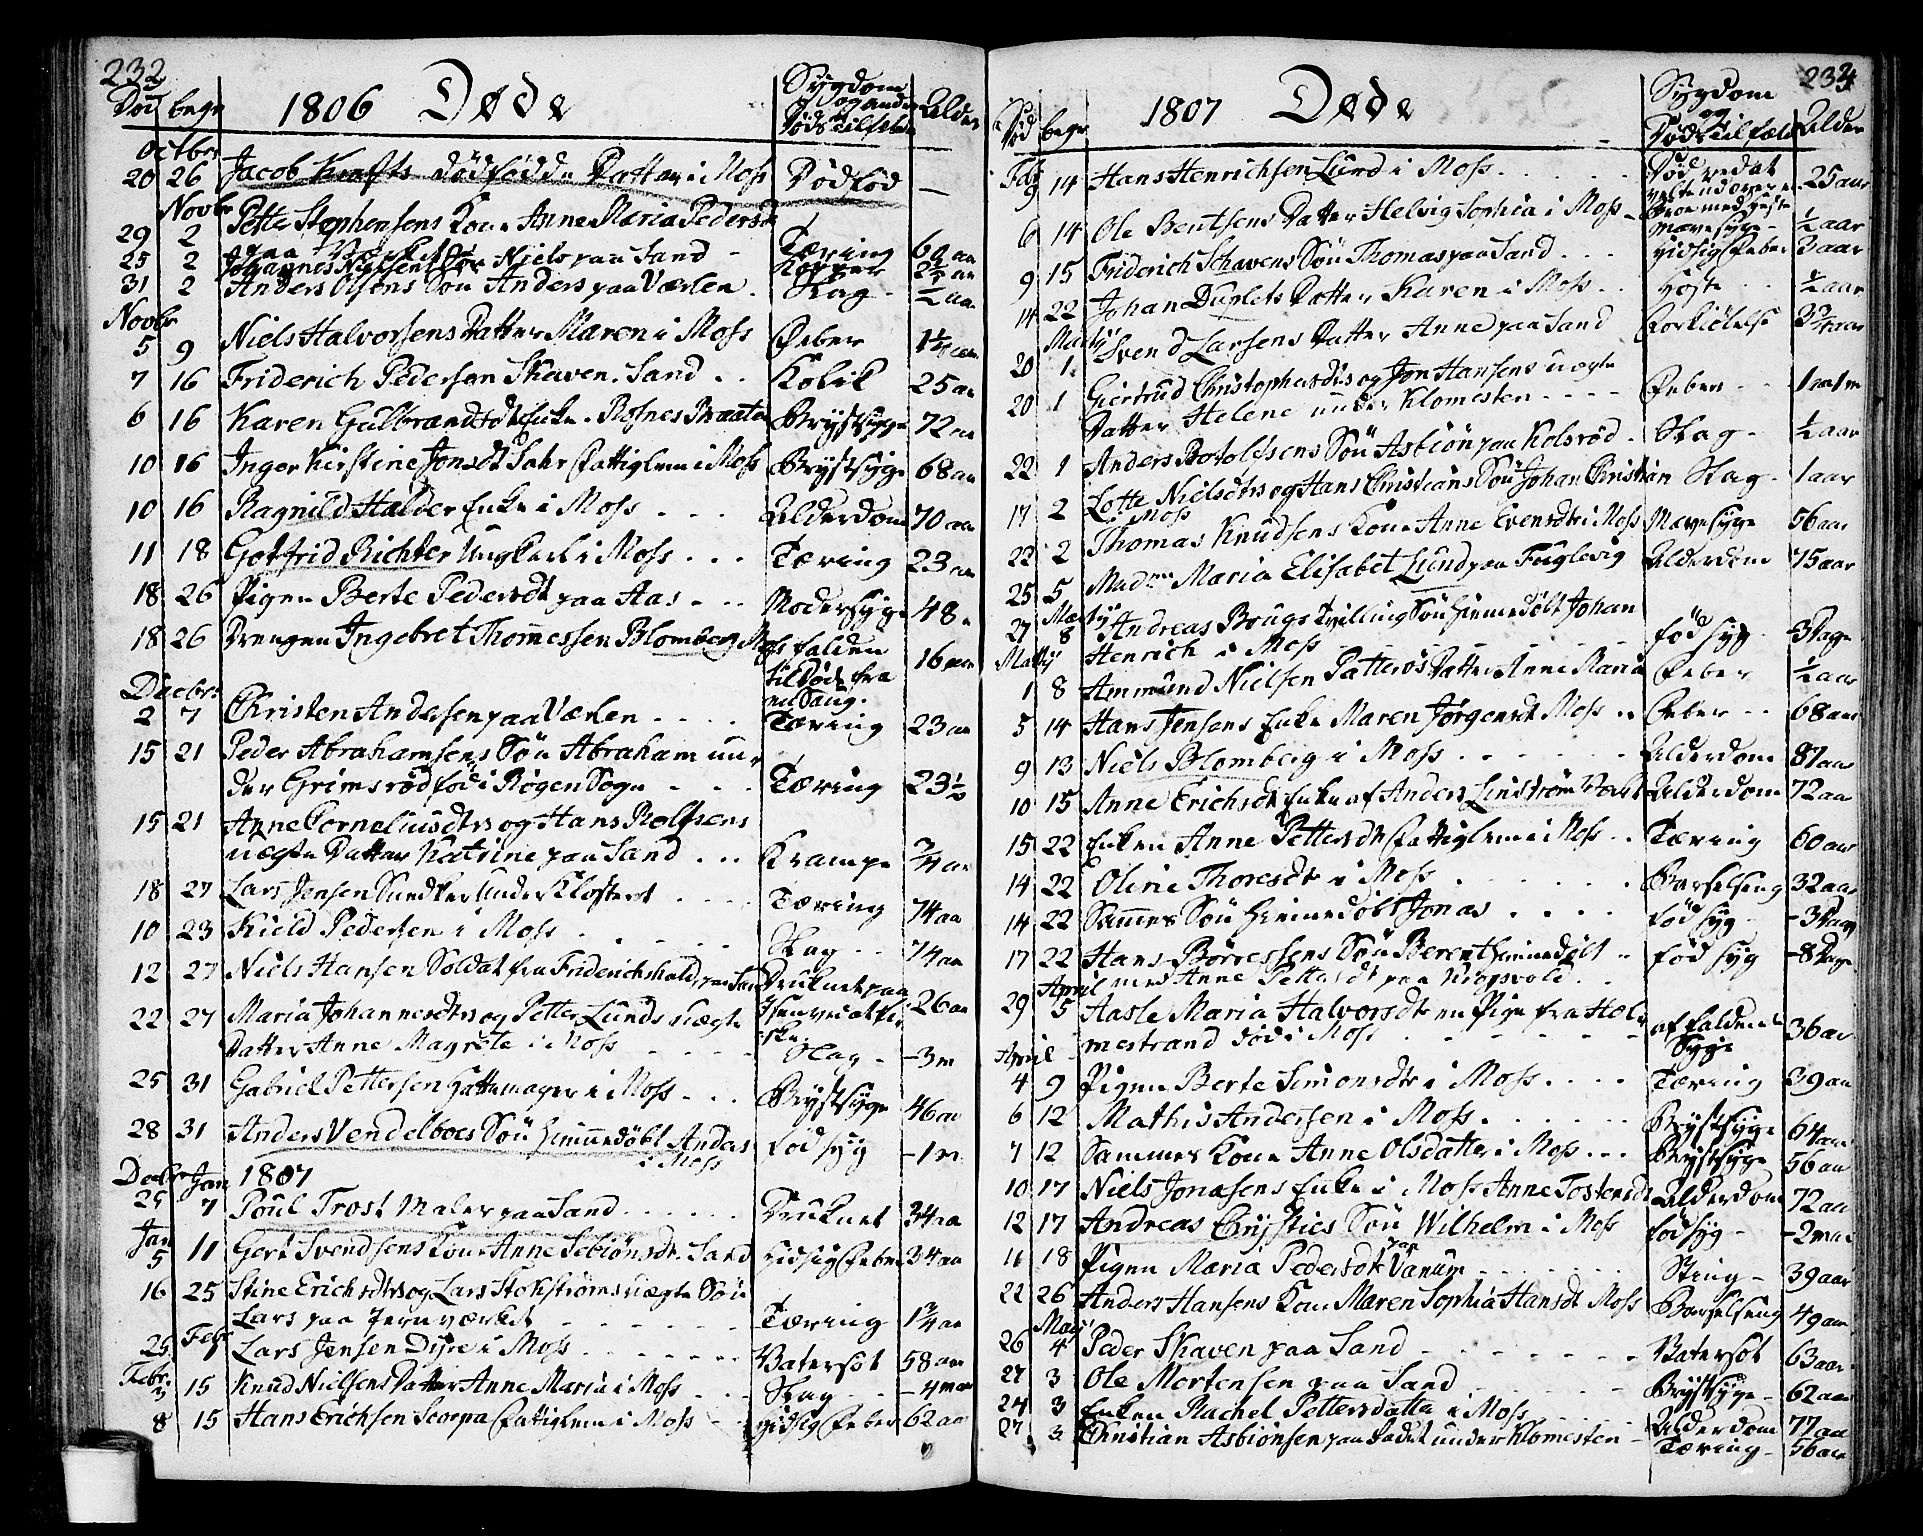 232
Død begr 1806 Døde Sygdom og andre Dødstilfælde Alder
Octbr
20 26 Jacob Krafts dødfødde Datter i Moss Dødfød —
Novbr
29 2 Petter Stephensens Kone Anne Maria Pedersdt
paa Tæring 60 aa
25 2 Johannes Nielsens Søn Niels paa Sand - Kopper 2½ aa
31 2 Anders Olsens Søn Anders paa Værlen . Slag - ½ aa
Novbr
5 9 Niels Halvorsens Datter Maren i Moss Feber
7 16 Friderich Pedersen Skaven. Sand . . Kolik 25 aa
6 16 Karen Gulbrandsdt Enke. Rosnes Braaten Brystsyge 72 aa
10 16 Inger Kirstine Jonsdt Fattiglem i Moss Brystsyge 68 aa
10 16 Ragnild Halder Enke i Moss . . . Alderdom 70 aa
11 18 Gotfrid Richter Ungkarl i Moss . . . Tæring 23 aa
18 26 Pigen Berte Pedersdt paa Aas - . . Modersyge 48
18 26 Drengen Ingebret Thommessen Blomberg Moss falden 16 aar
til Døde fra
Decbr
2 7 Christen Andersen paa Værlen . . . . Tæring 23 aa
15 21 Peder Abrahamsens Søn Abraham un-
der Grimsrød fød i Røgen Sogn - . . Tæring 23½
15 21 Anne Corneliusdtrs og Hans Rolfsens
uægte Datter Katrine paa Sand . . . Krampe ¾ aa
18 27 Lars Jensen Sundker under Klosteret . . . . Tæring 74 aa
10 23 Kield Pedersen i Moss . . . . Slag - - 74 aa
12 27 Niels Hansen Soldat fra Friderichshald, paa Sand Druknet paa 26 aa
Isen ved at fi-
ske
22 27 Maria Johannesdtrs og Petter Lunds uægte
Datter Anne Magrete i Moss - - - - Slag - - 3 m
25 31 Gabriel Pettersen Hattemager i Moss . . . Brystsyge 46 aa
28 31 Anders Vendelboes Søn hiemmedøbt Anders Fødsyg - 1 m
i Moss
Decbr Jan 1807
25 7 Poul Trost Maler paa Sand . . . . . . Druknet 34 aa
Jan
5 11 Gert Svendsens Kone Anne Sebiønsdt. Sand Hidsig Feber 34 aa
16 25 Stine Erichsdtrs og Lars Stokstrøms uægte Søn
Lars paa Jernværket - - - - - - - Tæring 1¾ aa
Feb
25 1 Lars Jensen Dyre i Moss . . . . . . Vatersot 58 aa
Febr.
15 Knud Nielsens Datter Anne Maria i Moss . . . Slag - - - 4 maa
8 15 Hans Erichsen Scorpa Fattiglem i Moss - - Hidsig Feber 62 aa
233
Død begr 1807 Døde Sygdom og Dødstilfælde Alder
Feb
9 14 Hans Henrichsen Lund i Moss . . . . . Død ved at 25 aar
velte ud over en
Broe med Heste
6 14 Ole Bentsens Datter Helvig Sophia i Moss - Mavesyge - ½ aar
9 15 Friderich Schavens Søn Thomas paa Sand . . . Hidsig Feber 3 aar
14 22 Johan Duplets Datter Karen i Moss . . Hoste - - ½ aar
Martij
20 1 Svend Larsens Datter Anne paa Sand Forkiølelse
20 1 Giertrud Christophersdtrs og Jon Hansens uægte
Datter Helene under Klomesten - - - - Feber - - 1 aa 1 m
22 1 Anders Botolfsens Søn Asbiøn paa Kolsrød - Slag - ½ aar
17 2 Lotte Nielsdtrs og Hans Christians Søn Johan Christian Slag - 1 aar
i Moss
22 2 Thomas Knudsens Kone Anne Evensdtr i Moss Mavesyge 56 aar
25 5 Madme Maria Elisabet Lund paa Fuglevig Alderdom 75 aar
Martij
27 8 Andreas Bougs Tvilling Søn hiemmedøbt Johan
Henrich i Moss . . . . . . Fødsyg - 3 Dage
Martij
1 8 Ammund Nielsen Patterøs Datter Anne Maria Feber ½ aar
5 14 Hans Jensens Enke Maren Jørgensdt Moss . . Feber - - 68 aar
9 13 Niels Blomberg i Moss . . . . . . Alderdom 87 aar
10 15 Anne Erichsdt Enke af Anders Linstrøm Alderdom 72 aa
15 22 Enken Anne Pettersdt Fattiglem i Moss . . Tæring 60 aar
14 22 Oline Thoresdtr i Moss . . . . . . Barselseng 32 aar
14 22 Sammes Søn hiemmedøbt Jonas . . . . Fødsyg - 3 Dage
17 22 Hans Børresens Søn Berent hiemmedøbt . . Fødsyg - 8 Dage
med Anne Pettersdt paa Krogsvold . .
April
29 5 Aasle Maria Halvorsdtr en Pige fra Hol-
mestrand død i Moss - - - - - affaldende 36 aar
Syge
April
4 9 Pigen Berte Simonsdtr i Moss . . . . Tæring 39 aa
6 12 Mathis Andersen i Moss . . . . . . Brystsyge 64 aa
7 12 Sammes Kone Anne Olsdatter i Moss . . . Brystsyge 56 aa
10 17 Niels Jonasens Enke i Moss Anne Tostensdt Alderdom 72 aa
12 17 Andreas Chrysties Søn Wilhelm i Moss Fødsyg - - 2 maa
11 18 Pigen Maria Pedersdt paa Vanum - . . . . . . Sting - 39 aar
22 26 Anders Hansens Kone Maren Sophia Hansdt Moss Barselseng 49 aa
Maij
26 4 Peder Skaven paa Sand - - - - - - - Vatersot 63 aar
27 3 Ole Mortensen paa Sand . . . . . Brystsyge - 62 aa
24 3 Enken Rachel Pettersdatter i Moss . . . . Alderdom 77 aa
27 3 Christian Asbionsen paa Fadet under Klomesten - Tæring - 56 aa